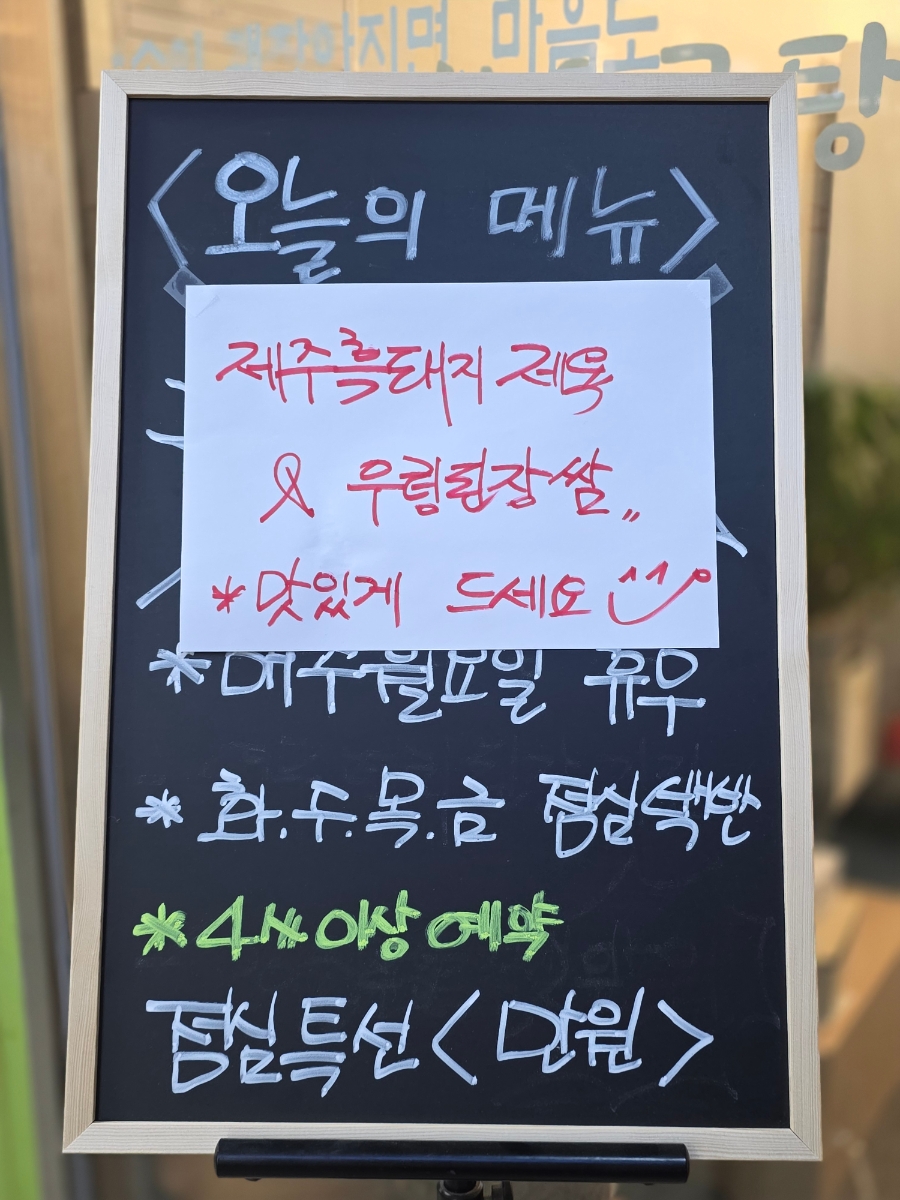 마음도
탕
<오늘의 메뉴>
제주흑돼지 제육
& 우렁된장쌈,,
*맛있게 드세요
*매주월요일 휴무
* 화.수.목.금 점심백반
*4人이상예약
점심특선<만원>